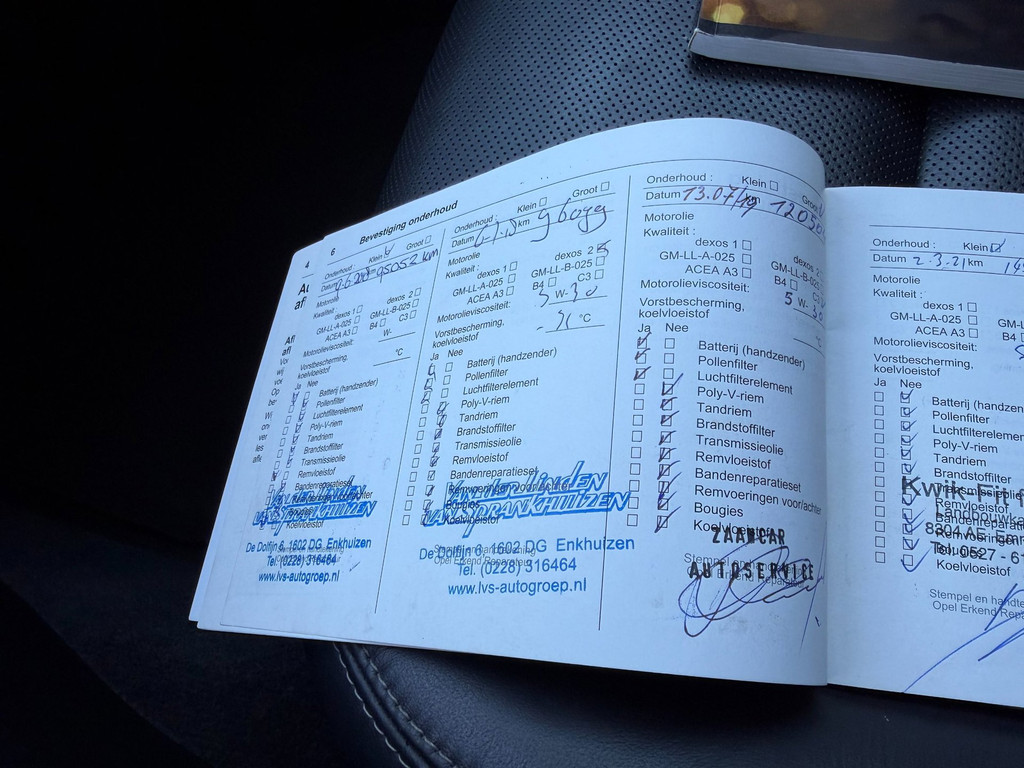 4
6
Bevestiging onderhoud
Onderhoud :
Klein
Groot
Datum
95052 km
Motorolie
Kwaliteit :
dexos 1
dexos 2
GM-LL-A-025
GM-LL-B-025
ACEA A3
B4
C3
Motorolieviscositeit:
W-
Vorstbescherming,
koelvloeistof
°C
Ja Nee
Batterij (handzender)
Pollenfilter
Luchtfilterelement
Poly-V-riem
Tandriem
Brandstoffilter
Transmissieolie
Remvloeistof
Bandenreparatieset
Bougies
Koelvloeistof
De Dolfijn 6, 1602 DG Enkhuizen
Tel. (0228) 316464
www.lvs-autogroep.nl
Onderhoud :
Klein
Groot
Datum
km
Motorolie
Kwaliteit :
dexos 1
dexos 2
GM-LL-A-025
GM-LL-B-025
ACEA A3
C3
Motorolieviscositeit:
5 W-30
Vorstbescherming,
koelvloeistof
°C
Ja Nee
Batterij (handzender)
Pollenfilter
Luchtfilterelement
Poly-V-riem
Tandriem
Brandstoffilter
Transmissieolie
Remvloeistof
Bandenreparatieset
Remvoeringen voor/achter
Bougies
Koelvloeistof
VAN SPRANKHUIZEN
De Dolfijn 6, 1602 DG Enkhuizen
Tel. (0228) 316464
www.lvs-autogroep.nl
Onderhoud :
Klein
Datum 13.07/19 km
Motorolie
Kwaliteit :
dexos 1
dexos 2
GM-LL-A-025
GM-LL-B-025
ACEA A3
B4
Motorolieviscositeit:
5 W-30
Vorstbescherming,
koelvloeistof
°C
Ja Nee
Batterij (handzender)
Pollenfilter
Luchtfilterelement
Poly-V-riem
Tandriem
Brandstoffilter
Transmissieolie
Remvloeistof
Bandenreparatieset
Remvoeringen voor/achter
Bougies
Koelvloeistof
ZAANCAR
AUTOSERVICE
Onderhoud :
Klein
Datum 2.3.21 km
Motorolie
Kwaliteit :
dexos 1
GM-LL-A-025
ACEA A3
B4
Motorolieviscositeit:
Vorstbescherming,
koelvloeistof
Ja Nee
Batterij (handzen
Pollenfilter
Luchtfilterelemen
Poly-V-riem
Tandriem
Brandstoffilter
Transmissieolie
Remvloeistof
Bandenrepara
Remvoeringen
Bougies
Koelvloeistof
Kwik Fit
Tel. 0527 - 6
Stempel en handte
Opel Erkend Repa